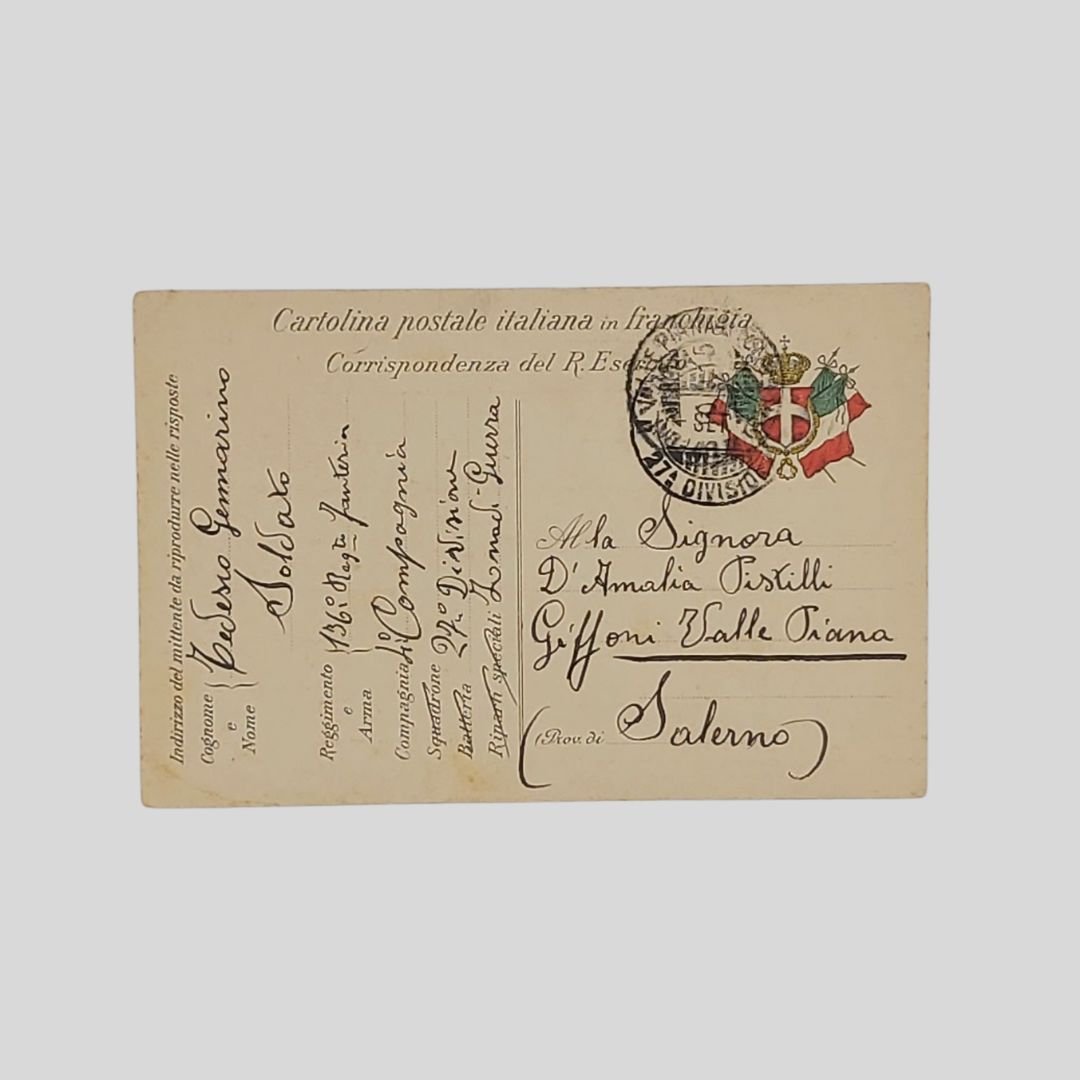 Cartolina postale italiana in franchigia
Corrispondenza del R. Esercito
27ª DIVISIO
15
SET
Indirizzo del mittente da riprodurre nelle risposte
Cognome e Nome { Tedesco Gennarino
Soldato
Reggimento e Arma { 136° Regto Fanteria
Compagnia 5i° Compagnia
Squadrone
Batteria 27° Divisione
Riparti speciali Zona di Guerra
Alla Signora
D'Amalia Pistilli
Giffoni Valle Piana
(Prov. di Salerno)